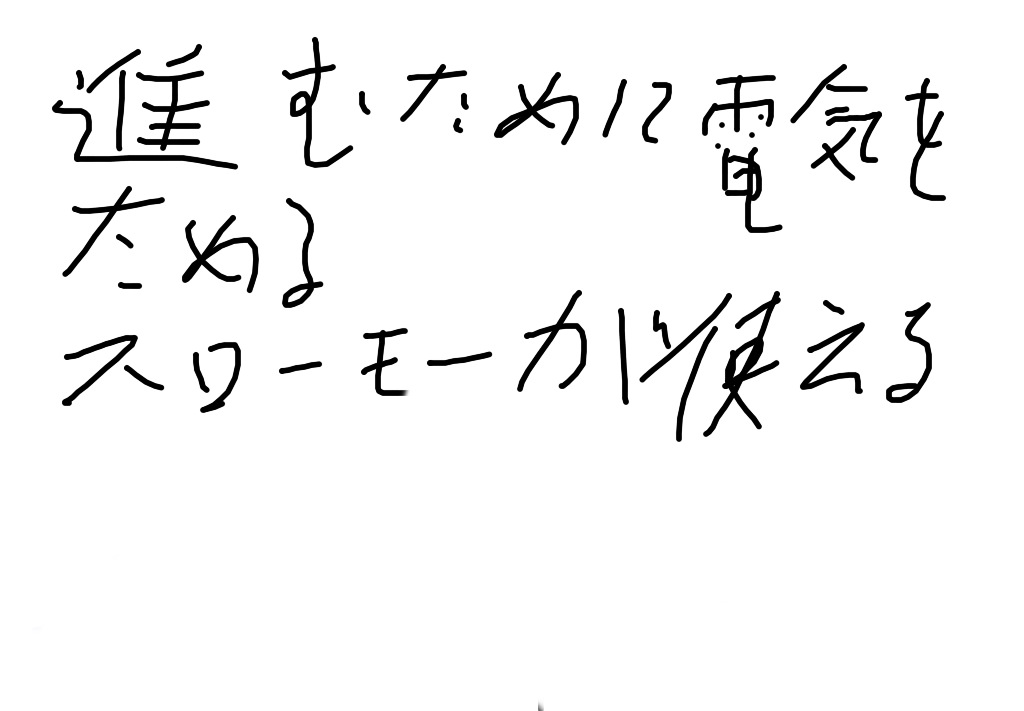 進むために電気を
ためる
スローモーが使える